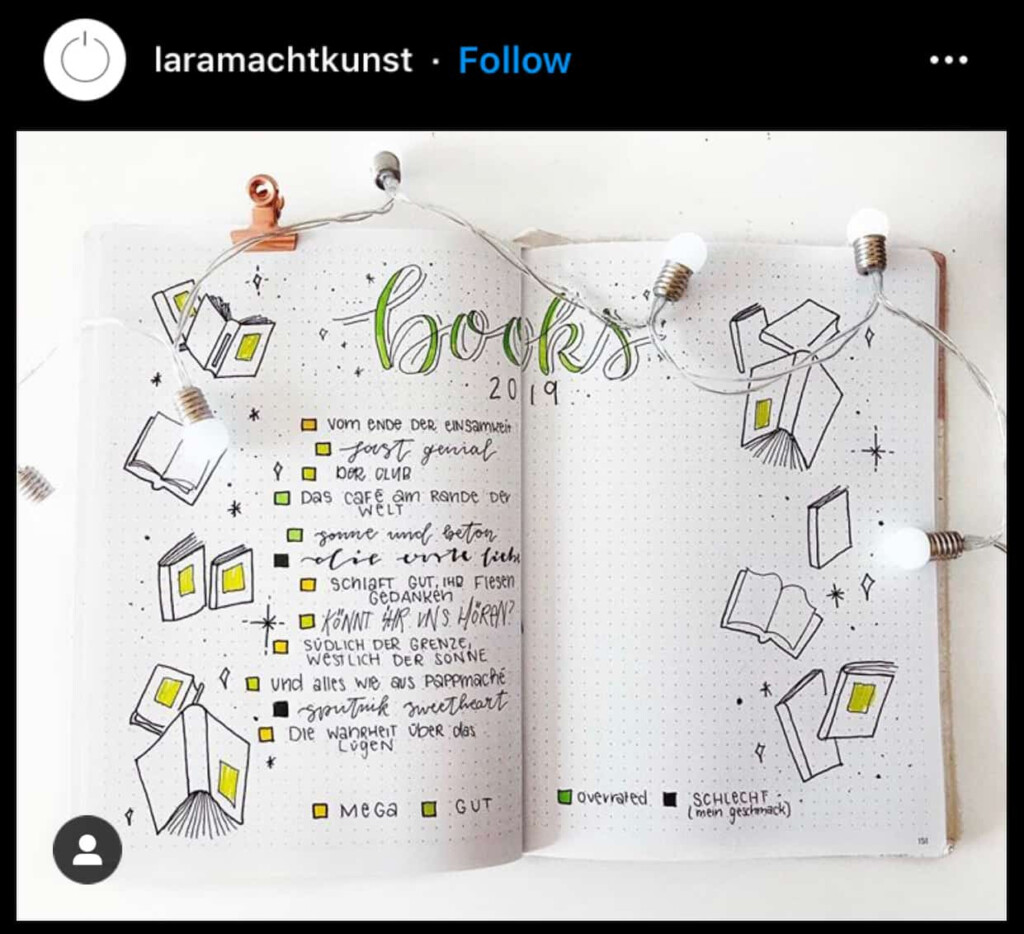 laramachtkunst · Follow
books
2019
VOM ENDE DER EINSAMKEIT
fast genial
DER CLUB
DAS CAFÉ AM RANDE DER
WELT
sonne und beton
die erste liebe
SCHLAFT GUT, IHR FIESEN
GEDANKEN
KÖNNT IHR UNS HÖREN?
SÜDLICH DER GRENZE,
WESTLICH DER SONNE
und alles wie aus pappmaché
sputnik sweetheart
DIE WAHRHEIT ÜBER DAS
LÜGEN
MEGA GUT
overrated SCHLECHT
(mein geschmack)
151